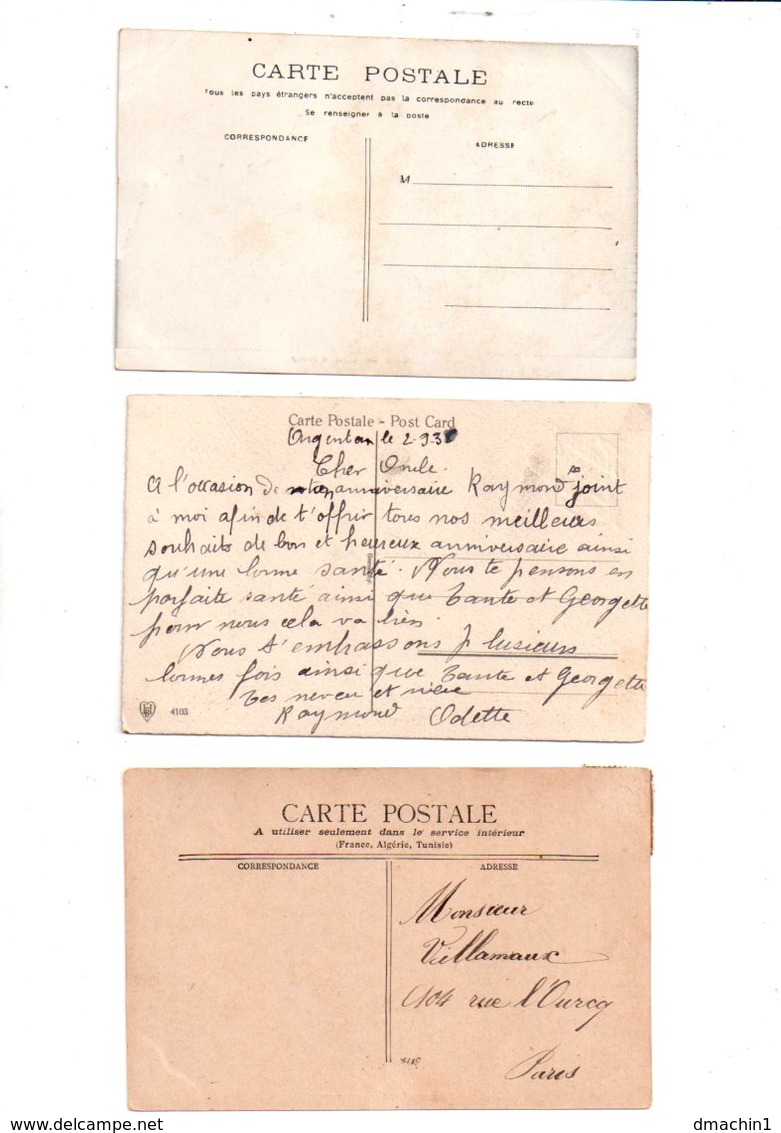 CARTE POSTALE
Tous les pays étrangers n'acceptent pas la correspondance au recto
Se renseigner à la poste
CORRESPONDANCE
ADRESSE
M
Carte Postale - Post Card
Argentan le 2.9.3
Cher Oncle.
A l'occasion de anniversaire Raymond joint
à moi afin de t'offrir tous nos meilleurs
souhaits de bon et heureux anniversaire ainsi
qu'une bonne santé. Nous te pensons en
parfaite santé ainsi que Tante et Georgette
pour nous cela va bien.
Nous t'embrassons plusieurs
bonnes fois ainsi que Tante et Georgette
Tes neveu et nièce
Raymond Odette
4103
CARTE POSTALE
A utiliser seulement dans le service intérieur
(France, Algérie, Tunisie)
CORRESPONDANCE
ADRESSE
Monsieur
Villamaux
104 rue l'Ourcq
Paris
www.delcampe.net
dmachin1